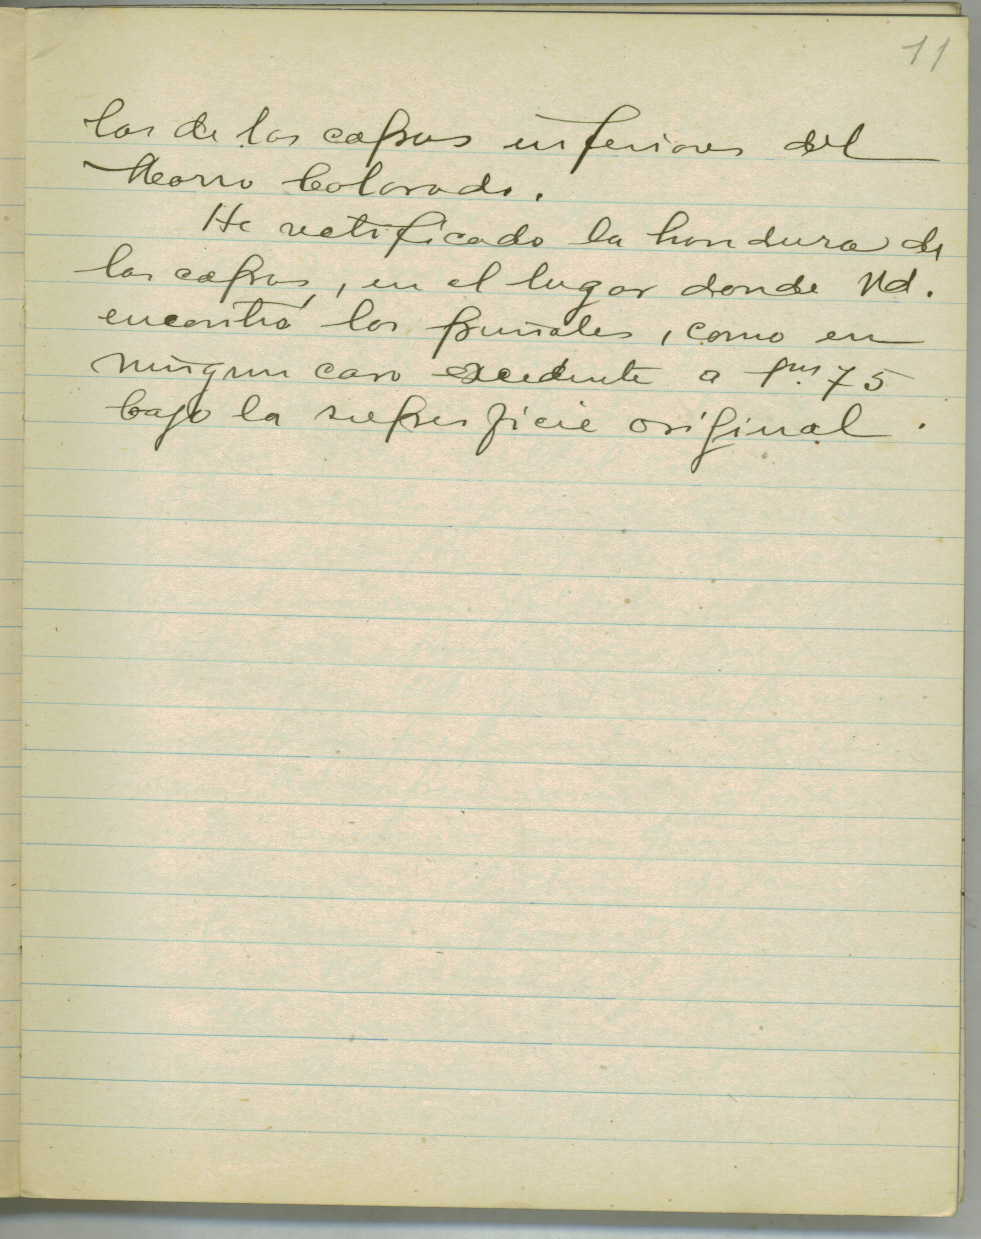 11
las de las capas inferiores del
Morro Colorado.
He ratificado la hondura de
las capas, en el lugar donde Ud.
encontró los puñales, como en
ningun caso excedente a
75
bajo la superficie original.